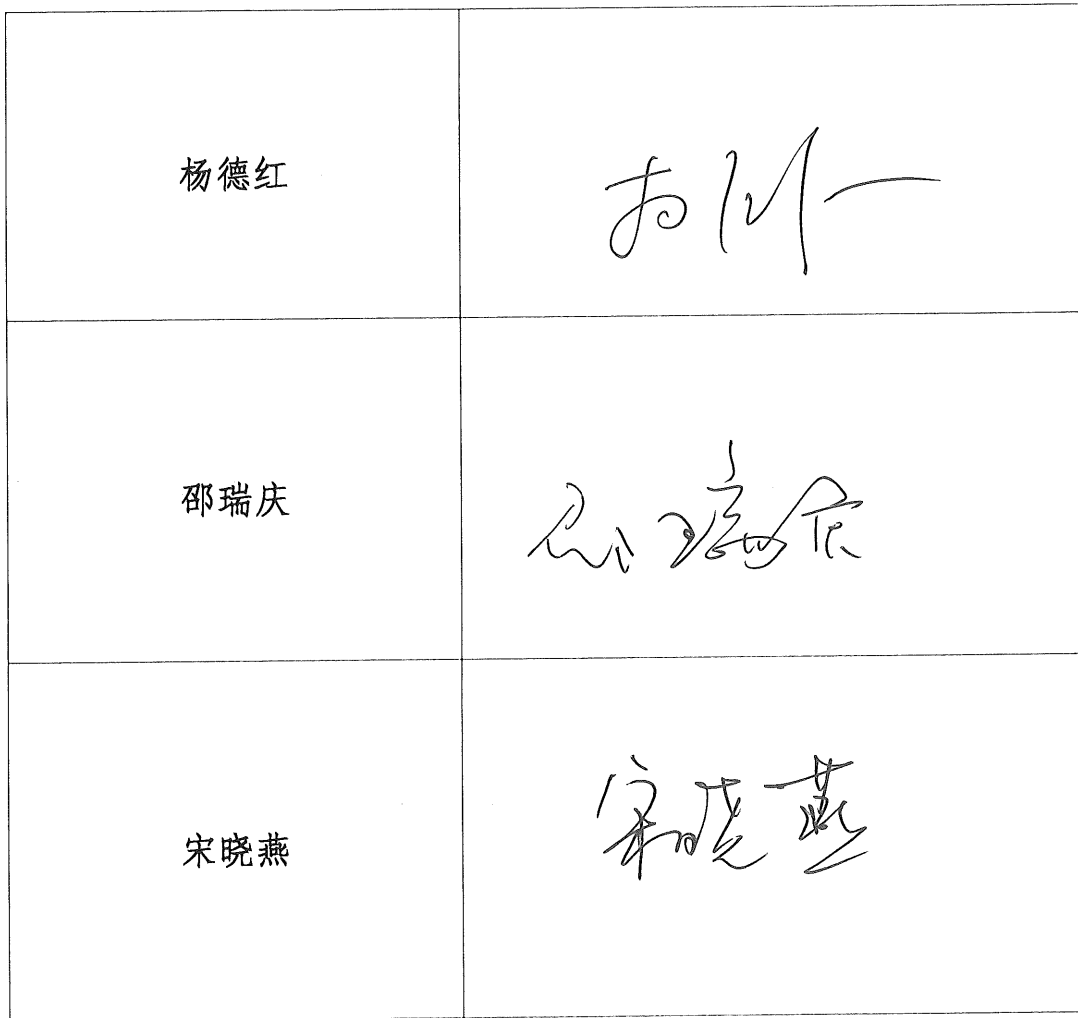 杨德红
邵瑞庆
邵瑞庆
宋晓燕
宋晓燕